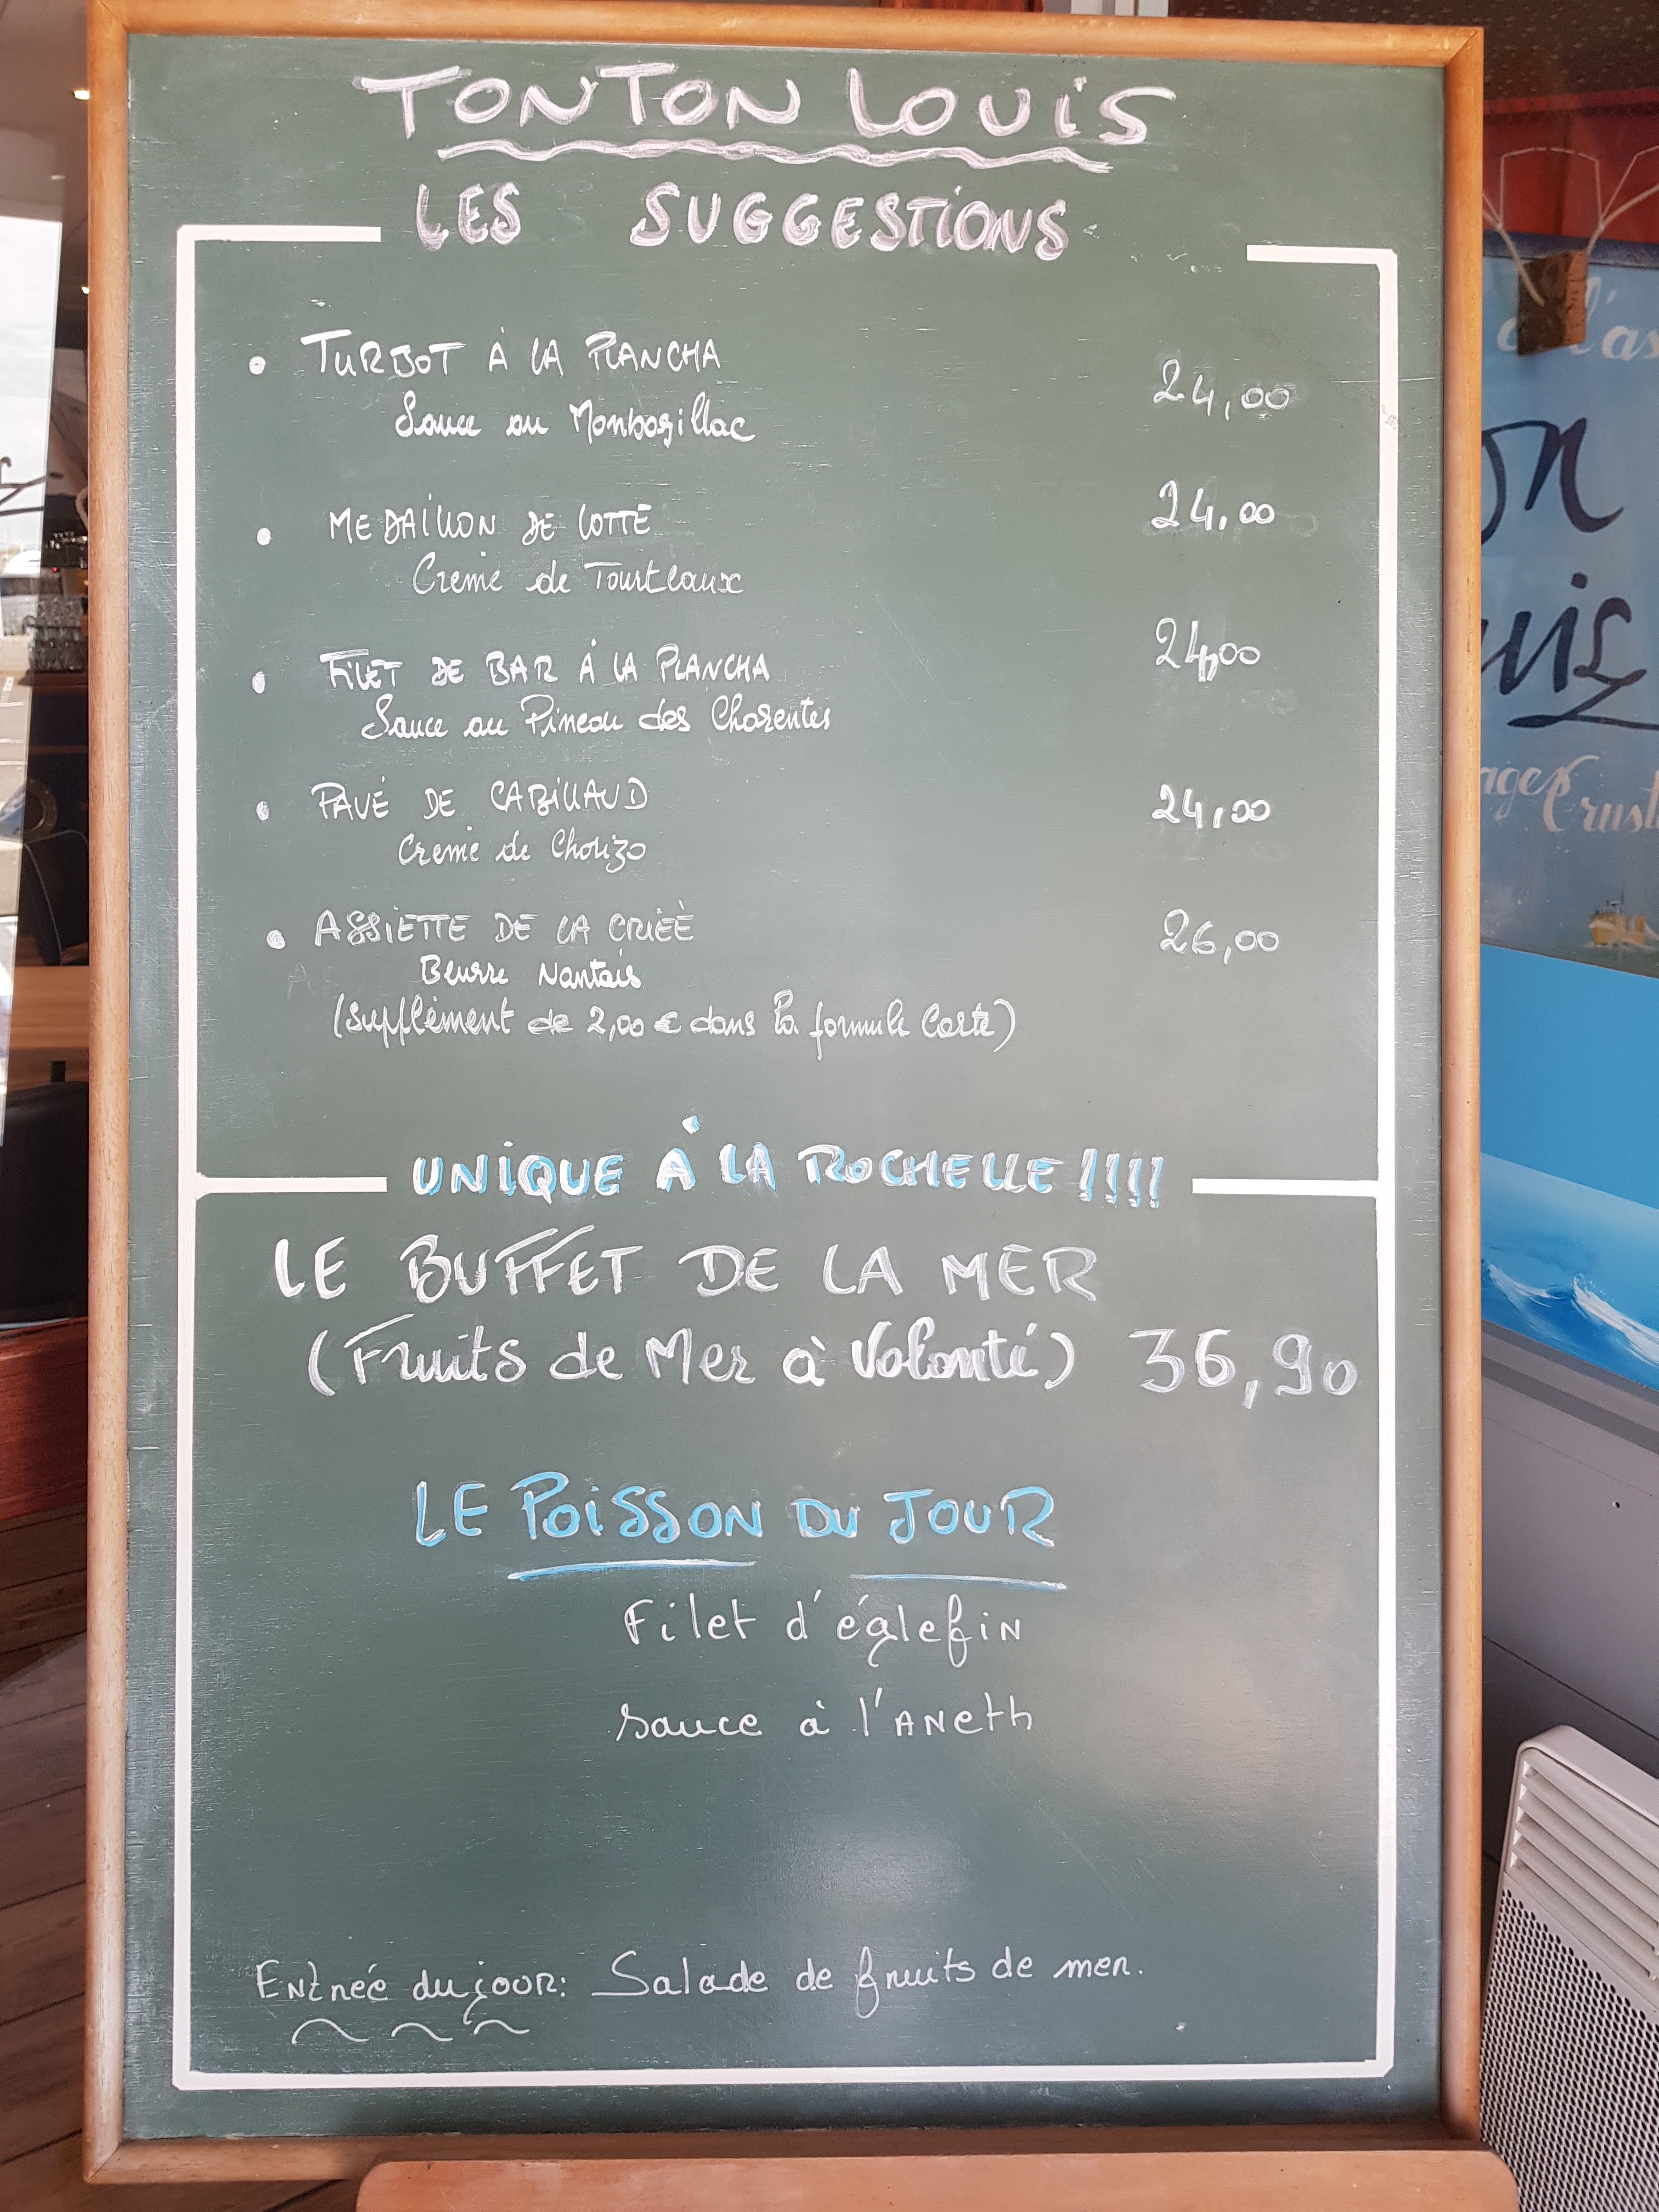 TONTON LOUIS
LES SUGGESTIONS
• TURBOT À LA PLANCHA 24,00
Sauce au Monbazillac
• MEDAILLON DE LOTTE 24,00
Creme de Tourteaux
• FILET DE BAR À LA PLANCHA 24,00
Sauce au Pineau des Charentes
• PAVÉ DE CABILLAUD 24,00
Creme de Chorizo
• ASSIETTE DE LA CRIÉE 26,00
Beurre Nantais
(supplément de 2,00 € dans la formule Carte)
UNIQUE À LA ROCHELLE !!!!
LE BUFFET DE LA MER
(Fruits de Mer à Volonté) 36,90
LE POISSON DU JOUR
Filet d'églefin
sauce à l'Aneth
Entrée du jour: Salade de fruits de mer.
on
uis
Crust